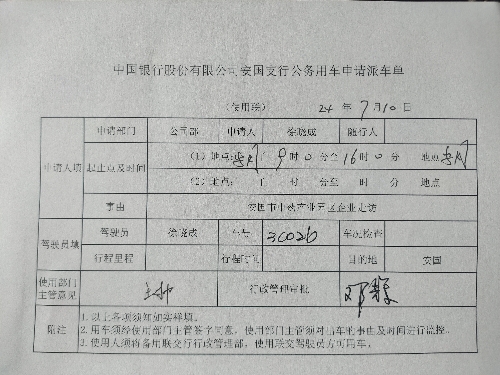 中国银行股份有限公司安国支行公务用车申请派车单
(使用联) 24 年 7 月 10 日
申请部门 公司部 申请人 徐晓成 随行人
申请人填 起止点及时间 (1) 地点: 于 9 时 0 分至 16 时 0 分 地点
(2) 地点: 于 时 分至 时 分 地点
事由 安国市中药产业园区企业走访
驾驶员填 驾驶员 徐晓成 车号 3C026 车况检查
行程里程 行程时间 目的地 安国
使用部门主管意见 行政管理审批
附注
1.以上各项须如实填。
2.用车须经使用部门主管签字同意，使用部门主管须对出车的事由及时间进行监控。
3.使用人须将备用联交行政管理部，使用联交驾驶员方可用车。